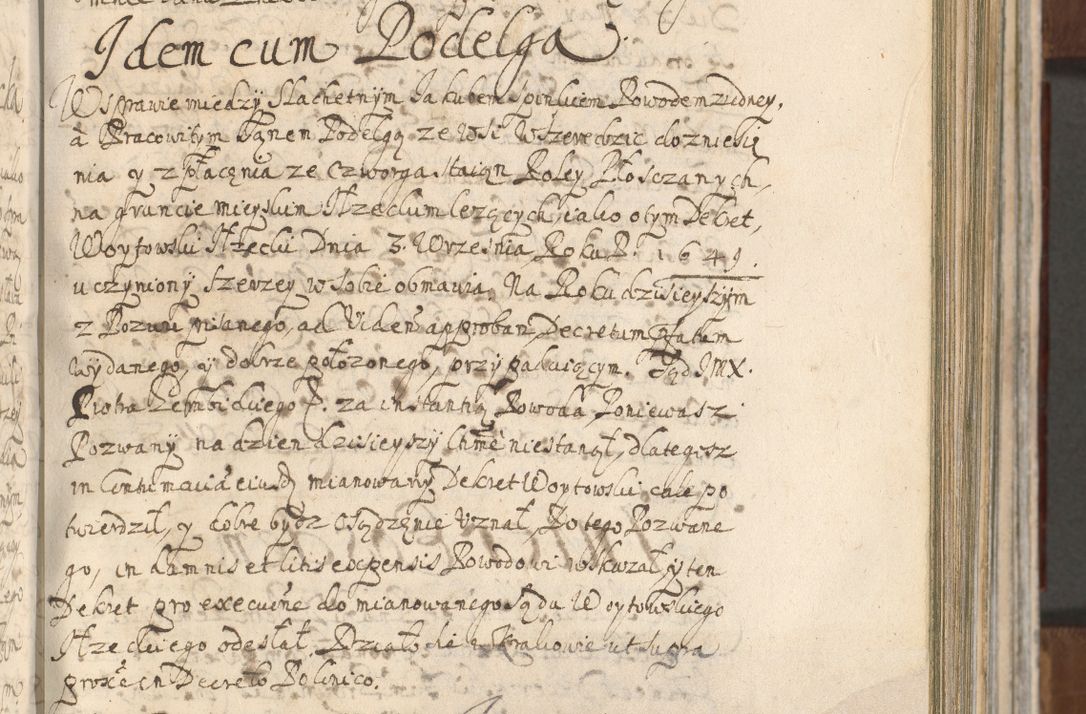 Idem cum Podelga
W sprawie między Slachetnym Jakubem Spinkiem Powodem z iedney,
à Pracowitym Janem Podelgą ze Wsi Wszeredzic do zniesię
nia y zpłacęnia ze czworga staiąn Roley Płosczanych,
na gruncie mieyskim Iłzeckim lezących iako o tym Dekret,
Woytowski Iłzecki Dnia 3. Wrzesnia Roku P. 1649.
uczyniony szerzey w sobie obmawia, Na Roku dzisieyszym
z Pozwu pisanego, ad Viden approban Decretum
wydanego, y dobrze połozonego, przypadaiącym. Sąd JMX.
Piotra Zembickiego P. za instantią Powoda Poniewasz
Pozwany na dzien dzisieyszy nie stanął, dlategosz
in Contumacia eiusd mianowany Dekret Woytowski cale po
twierdził, y dobre bydz osądzęnie Uznał, Po tego Pozwane
go, in damnis et litis expensis Powodowi wskazał, y ten
Dekret pro execucne do mianowanego Sądu Woytowskiego
Iłzeckiego odesłał. Działo sie w Krakowie ut supra
proxe in Decreto Bolinico.